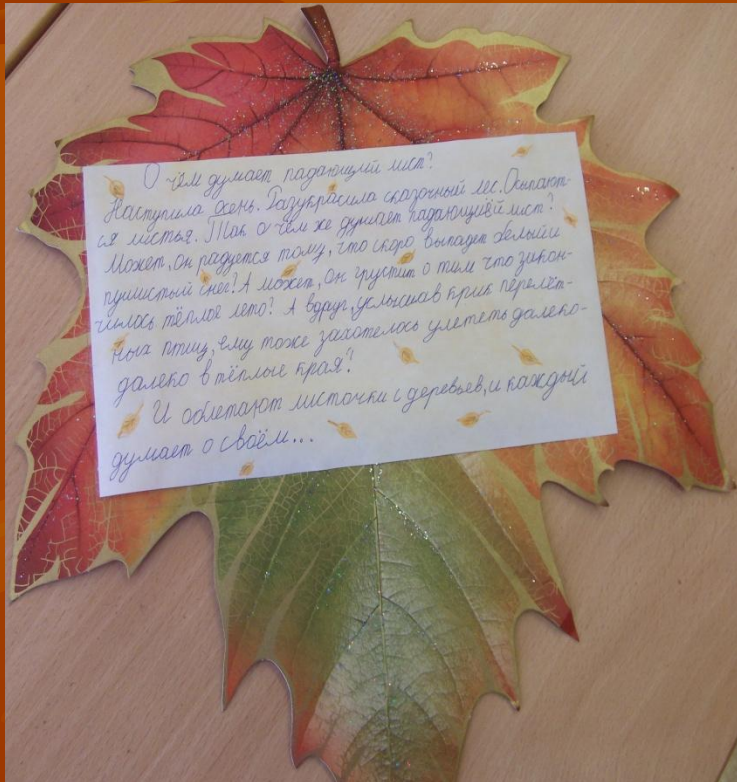 О чём думает падающий лист?
Наступила осень. Разукрасила сказочный лес. Осыпают-
ся листья. Так о чём же думает падающий лист?
Может, он радуется тому, что скоро выпадет белый и
пушистый снег? А может, он грустит о том что закон-
чилось тёплое лето? А вдруг, услышав крик перелёт-
ных птиц, ему тоже захотелось улететь далеко-
далеко в тёплые края?
И облетают листочки с деревьев, и каждый
думает о своём...